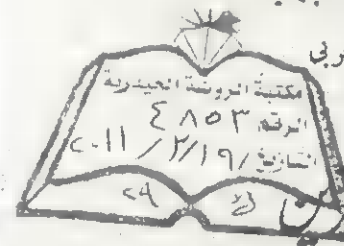 مكتبة الروضة الحيدرية
الرقم ٤٨٥٣
التاريخ ١٩/ ٢/ ٢٠١١